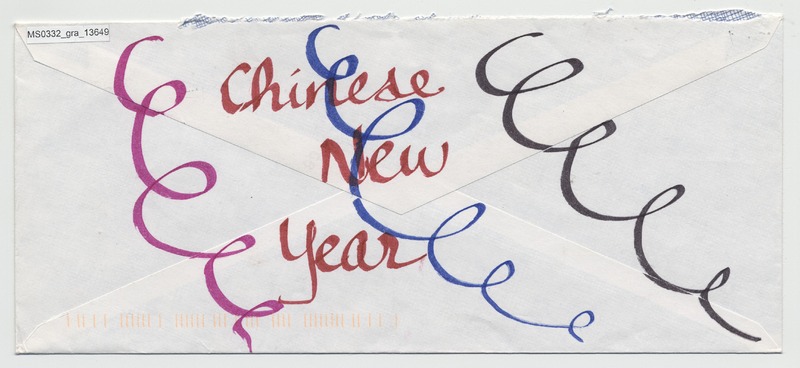 MS0332_gra_13649
Chinese
New
Year